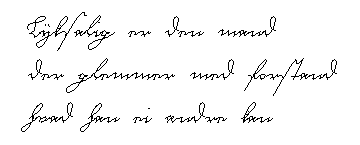 Lyksalig er den mand
der glemmer med forstand
hvad han ei andre kan